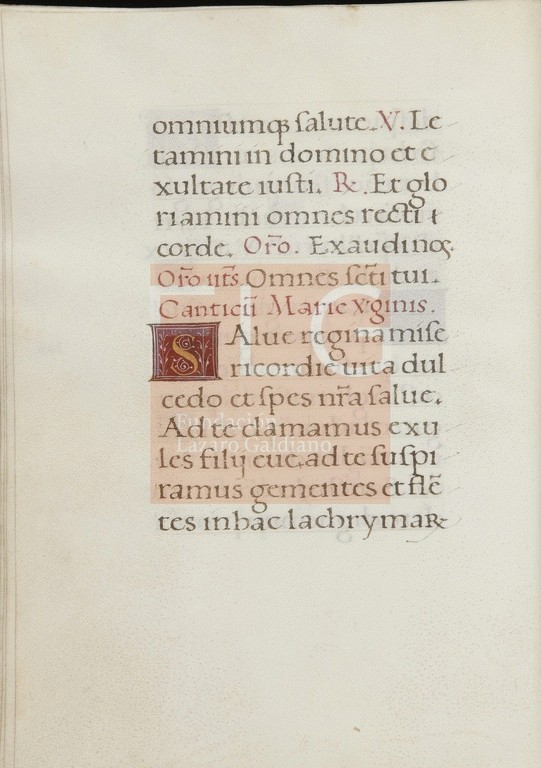 omniumqꝫ ſalute. V. Le
tamini in domino et e
xultate iuſti. ℟. Et glo
riamini omnes recti ı
corde. Oro̅. Exaudi nos.
Oro̅ ut̅s. Omnes ſc̅ti tui.
Canticu̅ Marie x̕ginis.
SAlue regina miſe
ricordie uita dul
cedo et ſpes nr̅a ſalue.
Ad te clamamus exu
les filij eue. ad te ſuſpi
ramus gementes et fle̅
tes in hac lachrymaꝝ
Fundación
Lázaro Galdiano